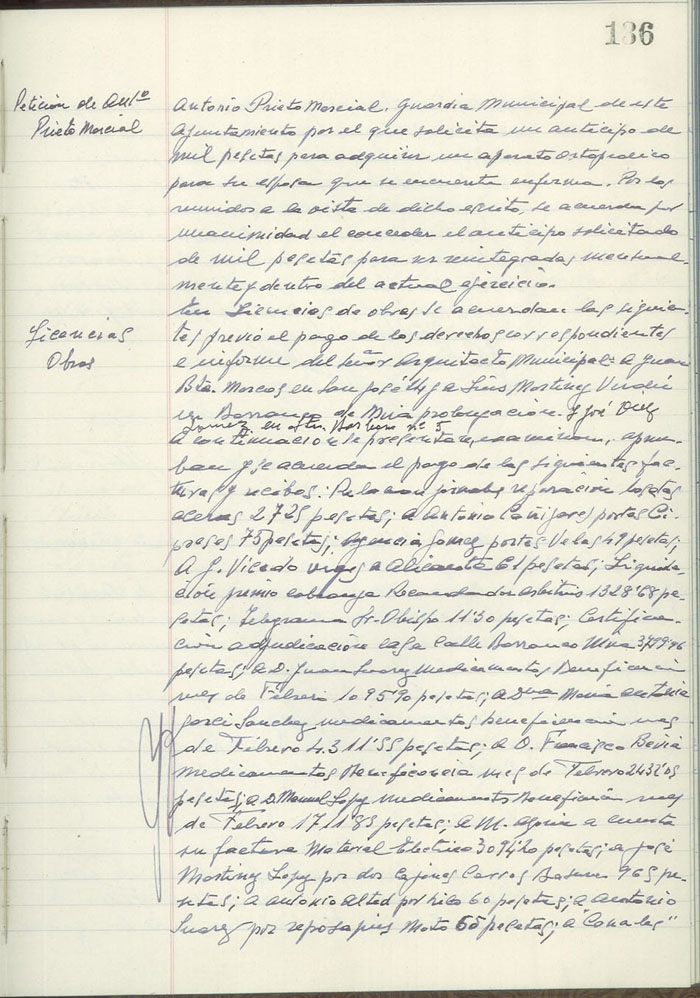 136
Petición de Antº
Prieto Marcial
Antonio Prieto Marcial, Guardia Municipal de este
Ayuntamiento por el que solicita un anticipo de
mil pesetas para adquirir un aparato ortopedico
para su esposa que se encuentra enferma. Por los
reunidos a la vista de dicho escrito, se acuerda por
unanimidad el conceder el anticipo solicitado
de mil pesetas para ser reintegradas mensual-
mente y dentro del actual ejercicio.
Licencias
Obras
En Licencias de obras se acuerdan las siguien-
tes previo el pago de los derechos correspondientes
e informe del señor Arquitecto Municipal: a Juan
Bta. Marcos en San José y a Luis Martinez Verdú
en Barranco de Mua prolongación. y José Diez
Gomez en Sta. Barbara nº 5
A continuacion se presentan, examinan, aprue-
ban y se acuerda el pago de las siguientes fac-
turas y recibos: Relacion jornales reparación losetas
aceras 2725 pesetas; a Antonio Cañizares portes Ci-
preses 75 pesetas; Agencia Gomez portes Velas 49 pesetas;
A J. Vicedo viajes a Alicante 61 pesetas; Liquida-
ción premio cobranza Recaudador arbitrios 1328'68 pe-
setas; Telegrama Sr. Obispo 11'30 pesetas; Certifica-
ción adjudicación casa Calle Barranco Mua
pesetas; a D. Juan Suarez medicamentos Beneficencia
mes de Febrero pesetas; a Dña Maria Antonia
Garci Sanchez medicamentos beneficencia mes
de Febrero 4.311'55 pesetas; a D. Francisco
medicamentos Beneficencia mes de Febrero 2432'05
pesetas; a D. Manuel Lopez medicamentos Beneficencia mes
de Febrero pesetas; a M. a cuenta
su factura Material Electrico pesetas; a José
Martinez Lopez por dos Cajones Carros Basura 965 pe-
setas; a Antonio Alted por hilo 60 pesetas; a Antonio
Suarez por reposapies Moto 65 pesetas; a "Canales"